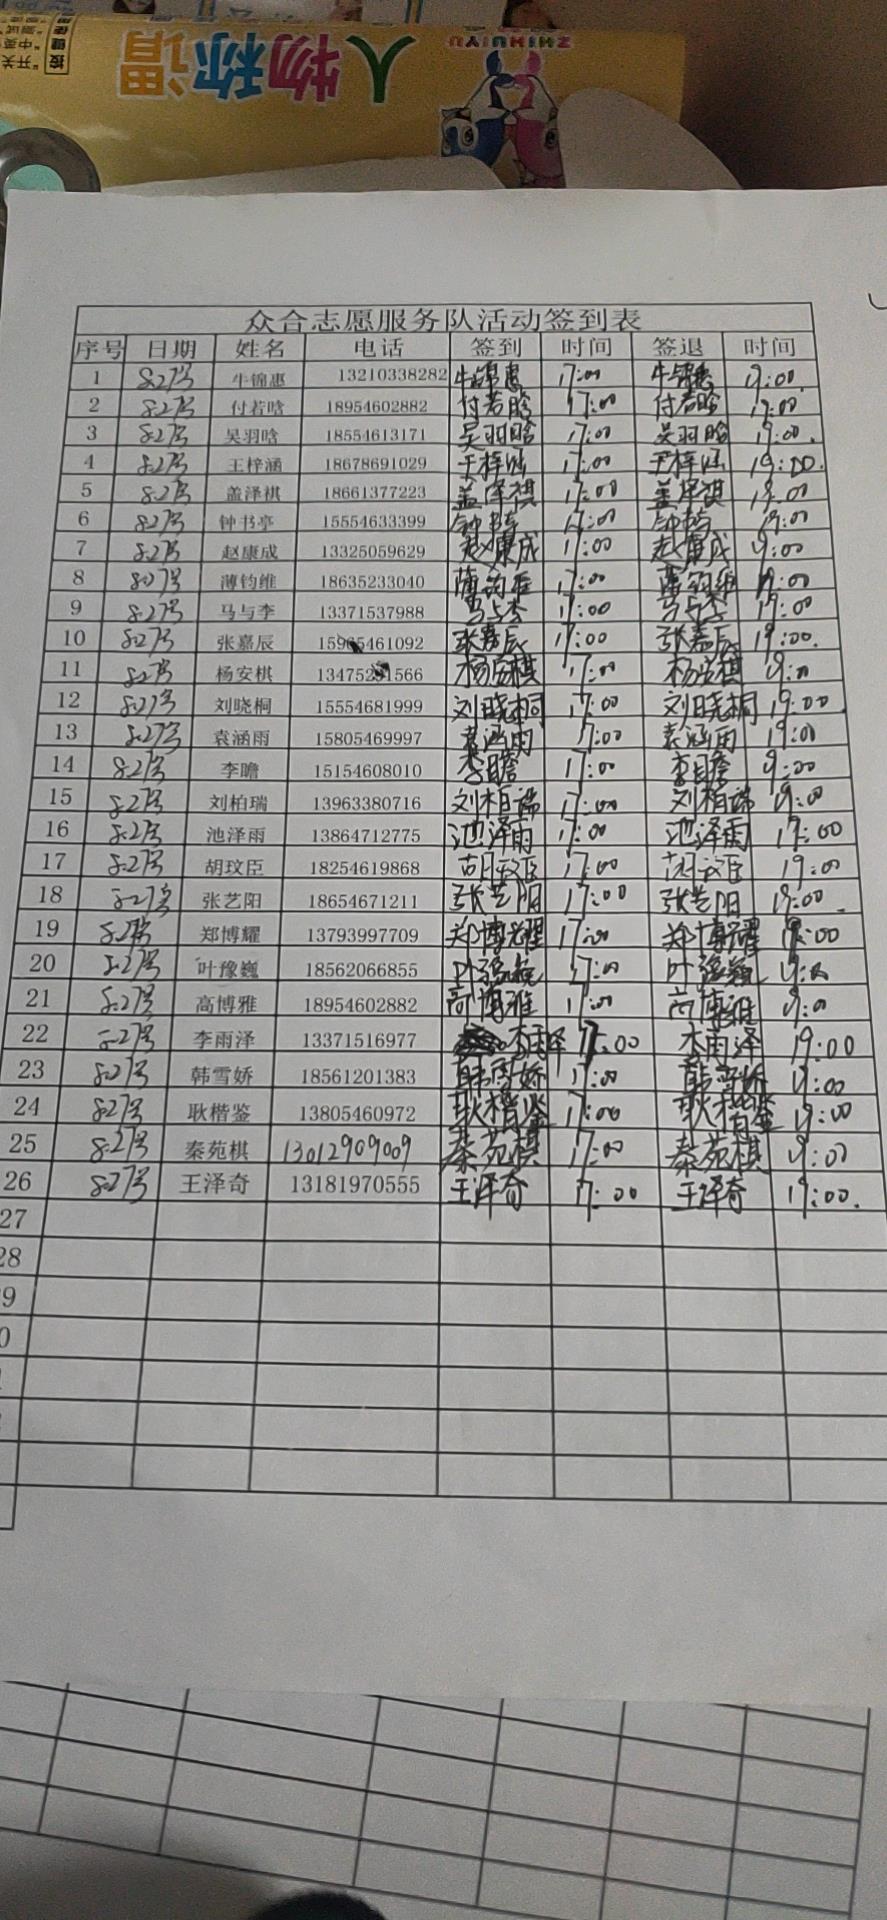 人物称谓
ZHIHUIYU
众合志愿服务队活动签到表
序号 日期 姓名 电话 签到 时间 签退 时间
1 8.27号 牛锦惠 13210338282 牛锦惠 17:00 牛锦惠 19:00
2 8.27号 付若晗 18954602882 付若晗 17:00 付若晗 19:00
3 8.27号 吴羽晗 18554613171 吴羽晗 17:00 吴羽晗 19:00
4 8.27号 王梓涵 18678691029 王梓涵 17:00 王梓涵 19:00
5 8.27号 盖泽祺 18661377223 盖泽祺 17:00 盖泽祺 19:00
6 8.27号 钟书亭 15554633399 钟书亭 17:00 钟书亭 19:00
7 8.27号 赵康成 13325059629 赵康成 17:00 赵康成 19:00
8 8.27号 薄钧维 18635233040 薄钧维 17:00 薄钧维 19:00
9 8.27号 马与李 13371537988 马与李 17:00 马与李 19:00
10 8.27号 张嘉辰 张嘉辰 17:00 张嘉辰 19:00
11 8.27号 杨安棋 杨安棋 17:00 杨安棋 19:00
12 8.27号 刘晓桐 15554681999 刘晓桐 17:00 刘晓桐 19:00
13 8.27号 袁涵雨 15805469997 袁涵雨 17:00 袁涵雨 19:00
14 8.27号 李瞻 15154608010 李瞻 17:00 李瞻 19:00
15 8.27号 刘柏瑞 13963380716 刘柏瑞 17:00 刘柏瑞 19:00
16 8.27号 池泽雨 13864712775 池泽雨 17:00 池泽雨 19:00
17 8.27号 胡玟臣 18254619868 胡玟臣 17:00 胡玟臣 19:00
18 8.27号 张艺阳 18654671211 张艺阳 17:00 张艺阳 19:00
19 8.27号 郑博耀 13793997709 郑博耀 17:00 郑博耀 19:00
20 8.27号 叶豫巍 18562066855 叶豫巍 17:00 叶豫巍 19:00
21 8.27号 高博雅 18954602882 高博雅 17:00 高博雅 19:00
22 8.27号 李雨泽 13371516977 李雨泽 17:00 李雨泽 19:00
23 8.27号 韩雪娇 18561201383 韩雪娇 17:00 韩雪娇 19:00
24 8.27号 耿楷鉴 13805460972 耿楷鉴 17:00 耿楷鉴 19:00
25 8.27号 秦苑棋 13012909009 秦苑棋 17:00 秦苑棋 19:00
26 8.27号 王泽奇 13181970555 王泽奇 17:00 王泽奇 19:00
27
28